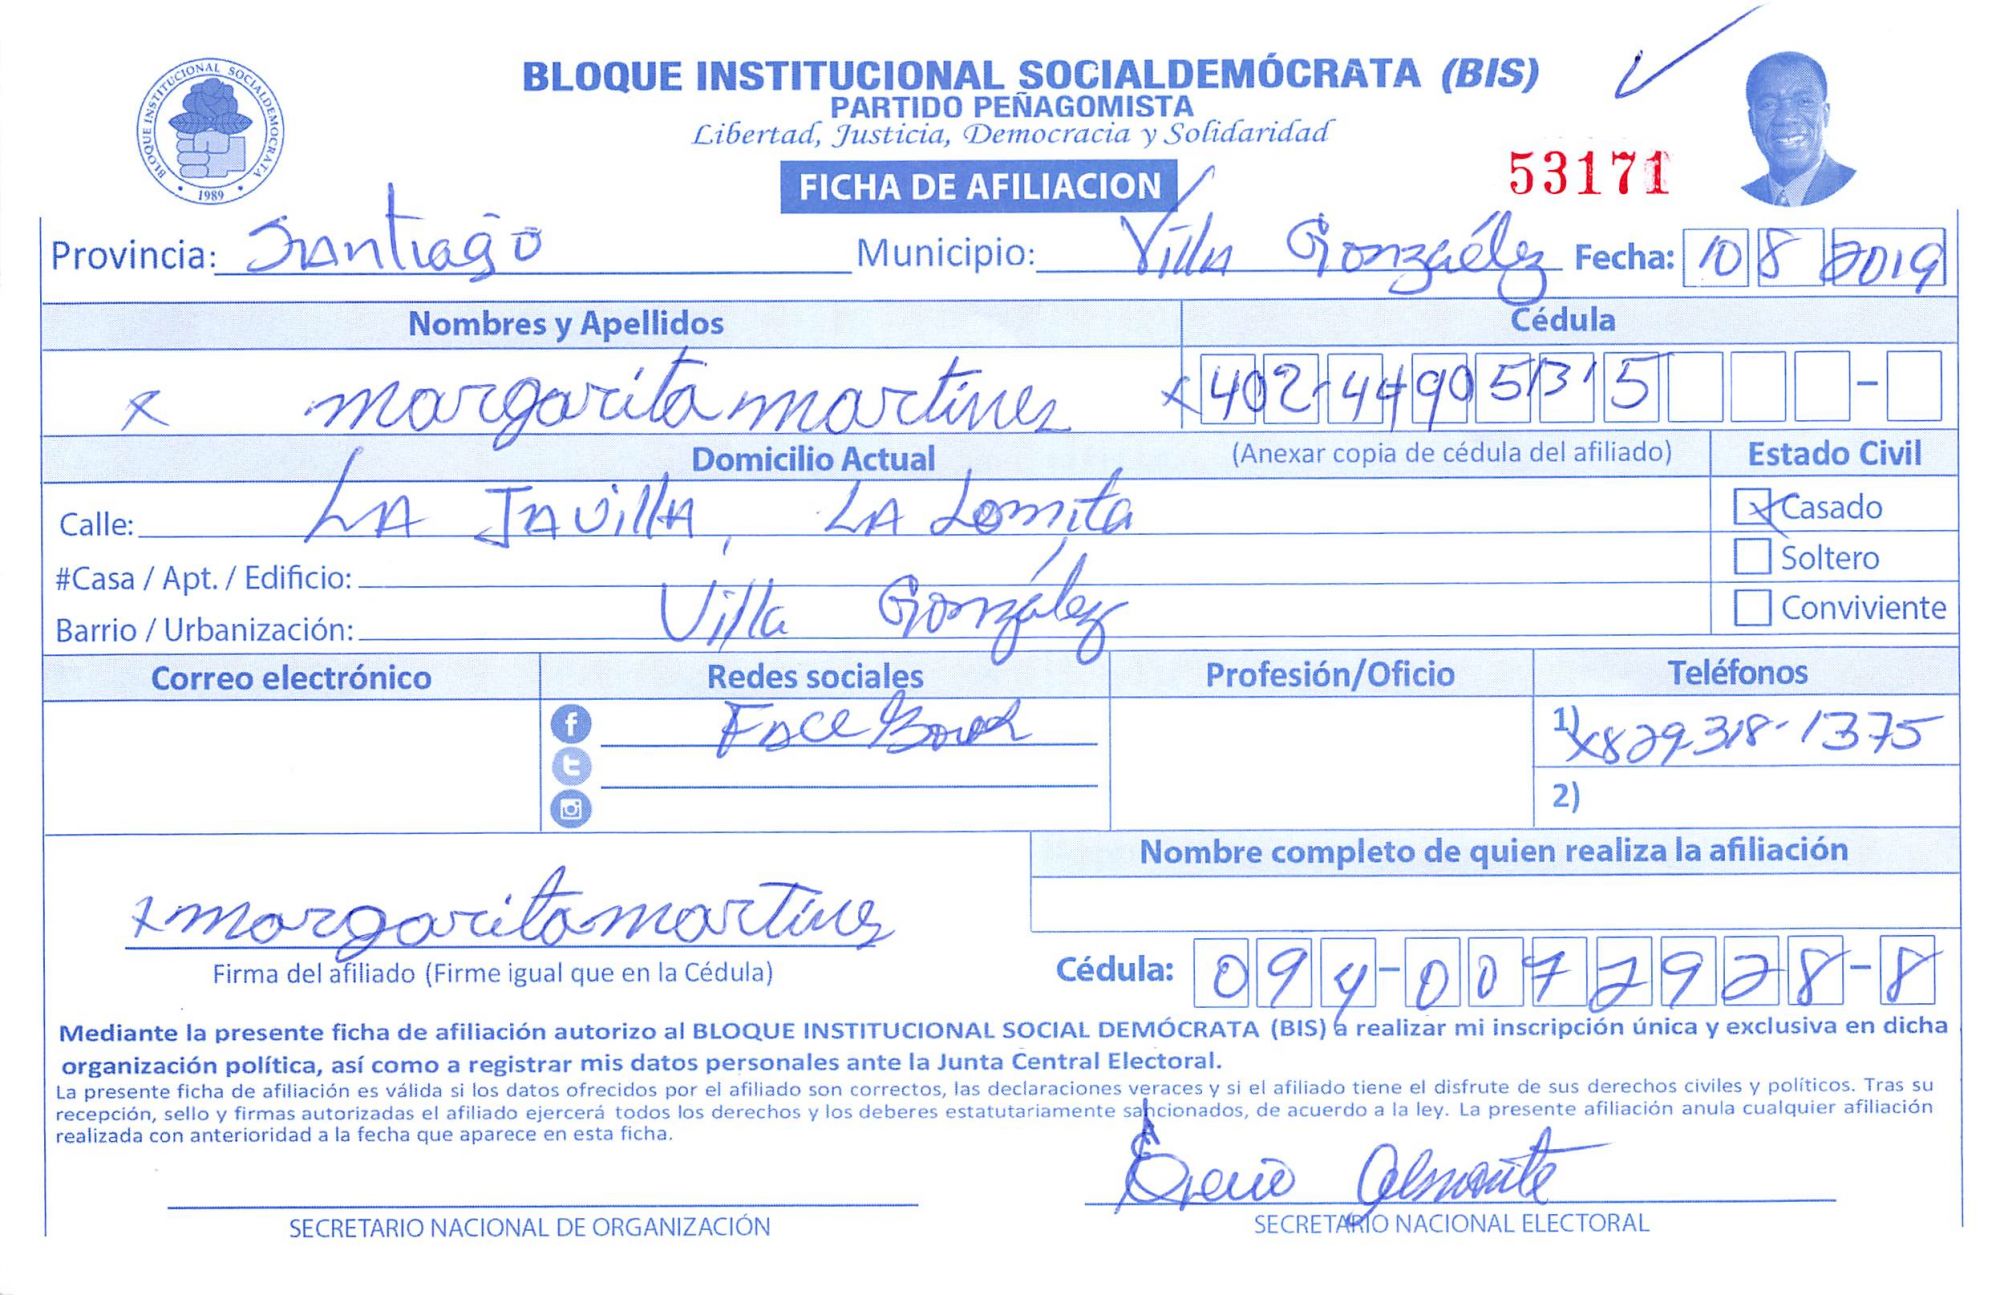 BLOQUE INSTITUCIONAL SOCIALDEMOCRATA
1989
BLOQUE INSTITUCIONAL SOCIALDEMÓCRATA (BIS)
PARTIDO PEÑAGOMISTA
Libertad, Justicia, Democracia y Solidaridad
53171
FICHA DE AFILIACION
Provincia: Santiago Municipio: Villa González Fecha: 10 8 2019
Nombres y Apellidos Cédula
x margarita martines x 402-44905315 -
Domicilio Actual (Anexar copia de cédula del afiliado) Estado Civil
Calle: LA JAVILLA, LA Lomita x Casado
#Casa / Apt. / Edificio: Soltero
Barrio / Urbanización: Villa González Conviviente
Correo electrónico Redes sociales Profesión/Oficio Teléfonos
FaceBook 1) x829-318-1375
2)
Nombre completo de quien realiza la afiliación
x margarita martines
Firma del afiliado (Firme igual que en la Cédula) Cédula: 094-0072928-8
Mediante la presente ficha de afiliación autorizo al BLOQUE INSTITUCIONAL SOCIAL DEMÓCRATA (BIS) a realizar mi inscripción única y exclusiva en dicha
organización política, así como a registrar mis datos personales ante la Junta Central Electoral.
La presente ficha de afiliación es válida si los datos ofrecidos por el afiliado son correctos, las declaraciones veraces y si el afiliado tiene el disfrute de sus derechos civiles y políticos. Tras su
recepción, sello y firmas autorizadas el afiliado ejercerá todos los derechos y los deberes estatutariamente sancionados, de acuerdo a la ley. La presente afiliación anula cualquier afiliación
realizada con anterioridad a la fecha que aparece en esta ficha.
Almonte
SECRETARIO NACIONAL DE ORGANIZACIÓN SECRETARIO NACIONAL ELECTORAL